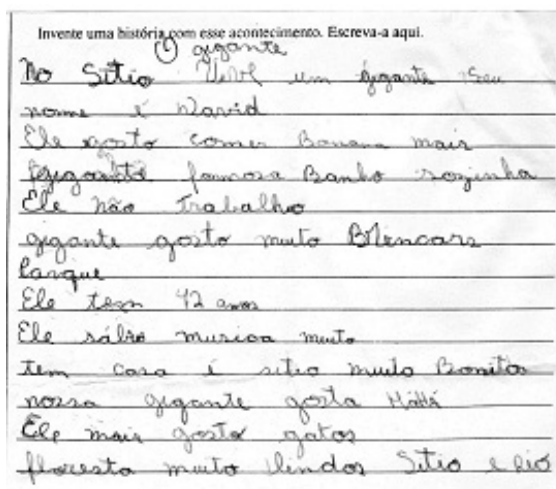 Invente uma história com esse acontecimento. Escreva-a aqui.
O gigante
No Sitio vive um gigante seu
nome é David
Ele gosto comer Banana mais
gigante famosa Banho sozinha
Ele não trabalho
gigante gosto muito
Parque
Ele tem 42 anos
Ele sábio musica muto
tem casa é sitio muito Bonitos
nossa gigante gosta
Ele mais gosto gatos
floresta muito lindos Sitio e rió